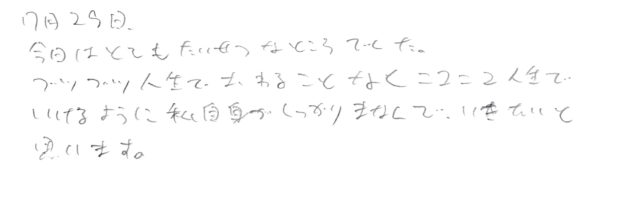 17日25日、
今日はとてもたいせつなところでした。
ブツブツ人生でおわることなくニコニコ人生で
いけるように私自身がしっかりまなんで、いきたいと
思います。